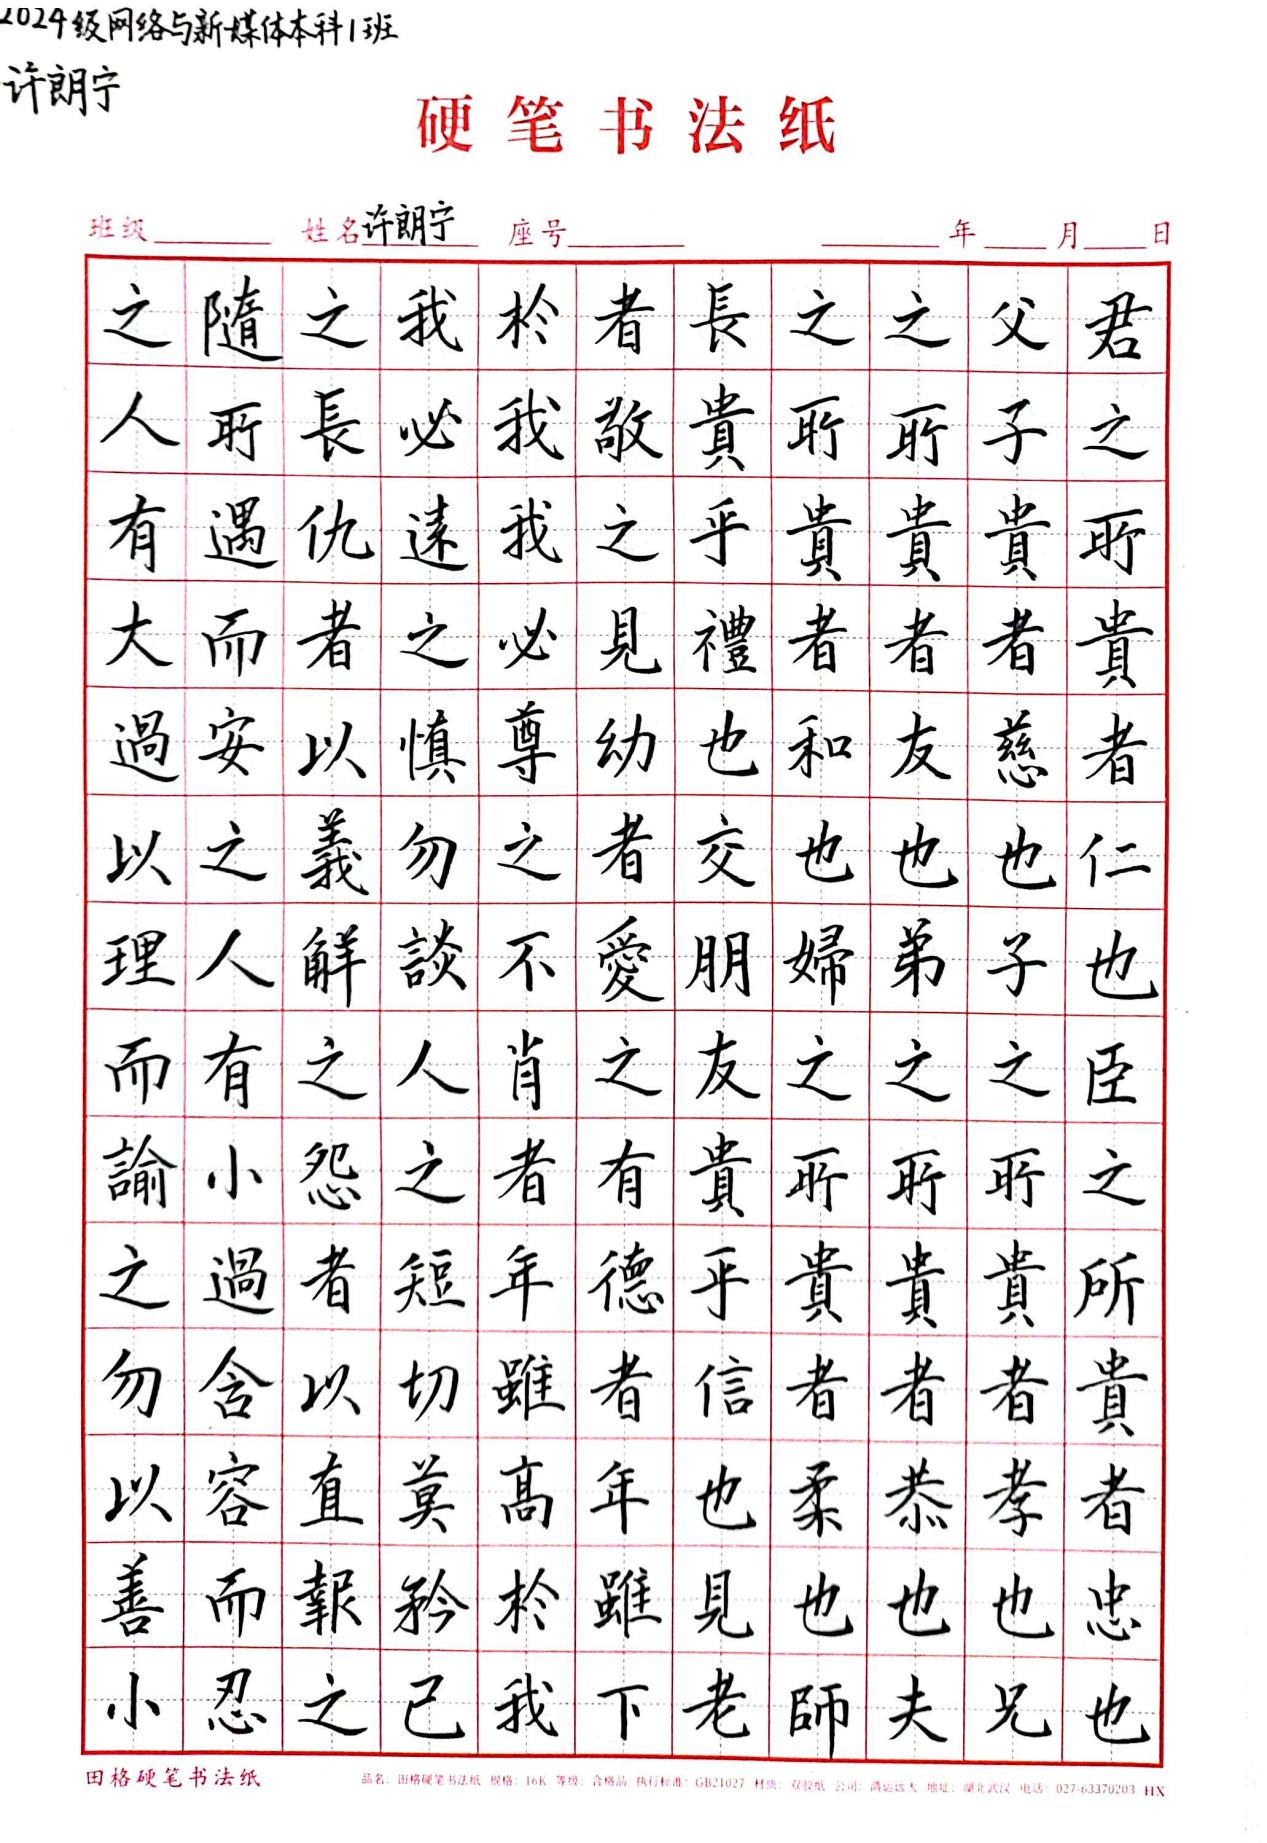 2024级网络与新媒体本科1班
许朗宁
硬笔书法纸
班级 姓名许朗宁 座号 年 月 日
君之所貴者仁也臣之所貴者忠也
父子貴者慈也子之所貴者孝也兄
之所貴者友也弟之所貴者恭也夫
之所貴者和也婦之所貴者柔也師
長貴乎禮也交朋友貴乎信也見老
者敬之見幼者愛之有德者年雖下
於我我必尊之不肖者年雖高於我
我必遠之慎勿談人之短切莫矜己
之長仇者以義解之怨者以直報之
隨所遇而安之人有小過含容而忍
之人有大過以理而諭之勿以善小
田格硬笔书法纸 品名：田格硬笔书法纸 规格：16K 等级：合格品 执行标准：GB21027 材质：双胶纸 公司：鸿运远大 地址：湖北武汉 电话：027-63370203 HX